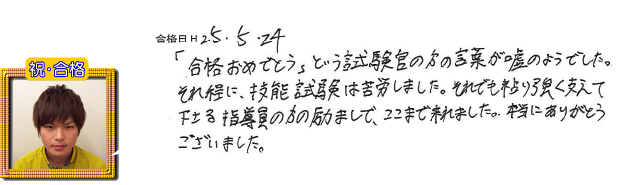 合格日H 25.5.24
祝・合格
「合格おめでとう」という試験官の方の言葉が嘘のようでした。
それ程に、技能試験は苦労しました。それでも粘り強く支えて
下さる指導員の方の励ましで、ここまで来れました。本当にありがとう
ございました。